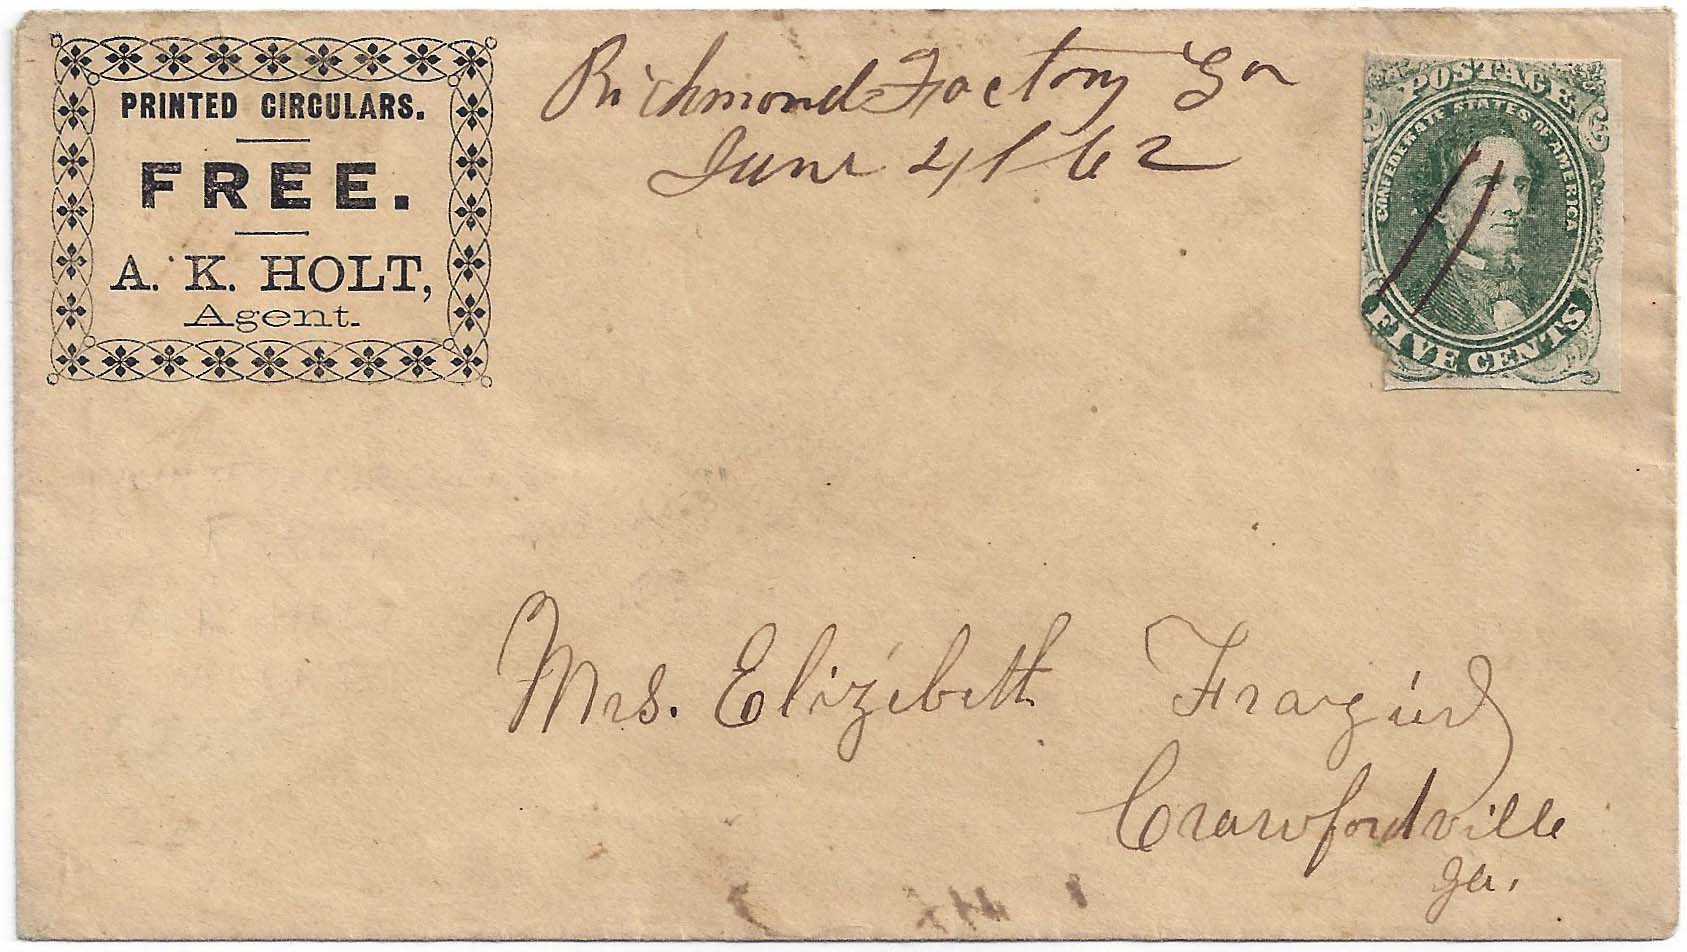 PRINTED CIRCULARS.
FREE.
A. K. HOLT,
Agent.
Richmond Factory Ga
June 4/62
POSTAGE
CONFEDERATE STATES OF AMERICA
FIVE CENTS
Mrs. Elizibeth
Crawfordville
Ga.